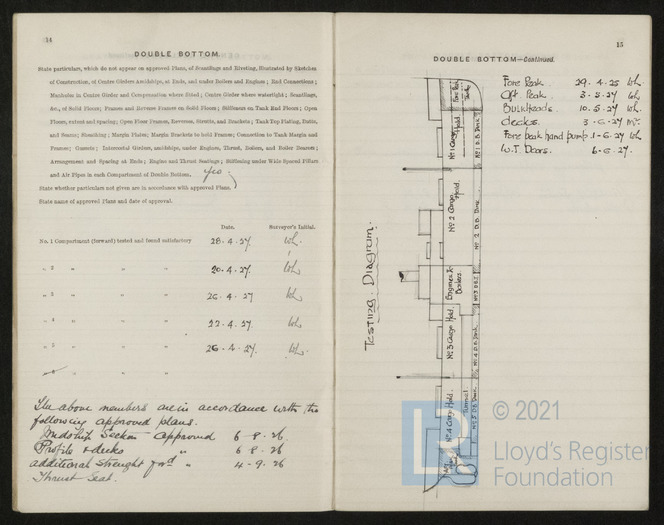 14
DOUBLE BOTTOM
State particulars, which do not appear on approved Plans, of Scantlings and Riveting, illustrated by Sketches
of Construction, of Centre Girders Amidships, at Ends, and under Boilers and Engines; End Connections;
Manholes in Centre Girder and Compensation where fitted; Centre Girder where watertight; Scantlings,
&c., of Solid Floors; Frames and Reverse Frames on Solid Floors; Stiffeners on Tank End Floors; Open
Floors, extent and spacing; Open Floor Frames, Reverses, Struts, and Brackets; Tank Top Plating, Butts,
and Seams; Bleeding; Margin Plates; Margin Brackets to hold Frames; Connection to Tank Margin and
Frames; Gussets; Intercostal Girders, amidships, under Engines, Thrust, Boilers, and Boiler Bearers;
Arrangement and Spacing at Ends; Engine and Thrust Seatings; Stiffening under Wide Spaced Pillars
and Air Pipes in each Compartment of Double Bottom.
yes.
State whether particulars not given are in accordance with approved Plans.
State name of approved Plans and date of approval.
Date. Surveyor's Initial.
No. 1 Compartment (forward) tested and found satisfactory 28.4.27. Wh.
„ 2 „ „ „ 20.4.27. Wh
„ 3 „ „ „ 26.4.27 Wh
„ 4 „ „ „ 22.4.27. Wh
„ 5 „ „ „ 26.4.27. Wh.
„ 6 „ „ „
The above members are in accordance with the
following approved plans.
Midship Section approved 6-8-26.
Profile & decks „ 6 8-26
additional strenght for'd „ 4-9-26
Thrust Seat.
15
DOUBLE BOTTOM—Continued.
Fore Peak 29.4.25 Wh.
Aft Peak. 3-5-27 Wh
Bulkheads. 10.5.27 Wh.
decks. 3-6-27
Fore peak hand pump. 1-6-27 Wh
W.T. Doors. 6-6-27.
Testing Diagram.
Fore Peak Tank
No 1 Cargo Hold.
No 1 D.B. Tank
No 2 Cargo Hold.
No 2 D.B. Tank.
Engines & Boilers
No 3 D.B.T.
No 3 Cargo Hold.
No 4 D.B. Tank.
No 4 Cargo Hold.
Tunnel
No 5 D.B. Tank.
Aft Peak
LR
© 2021
Lloyd's Register
Foundation